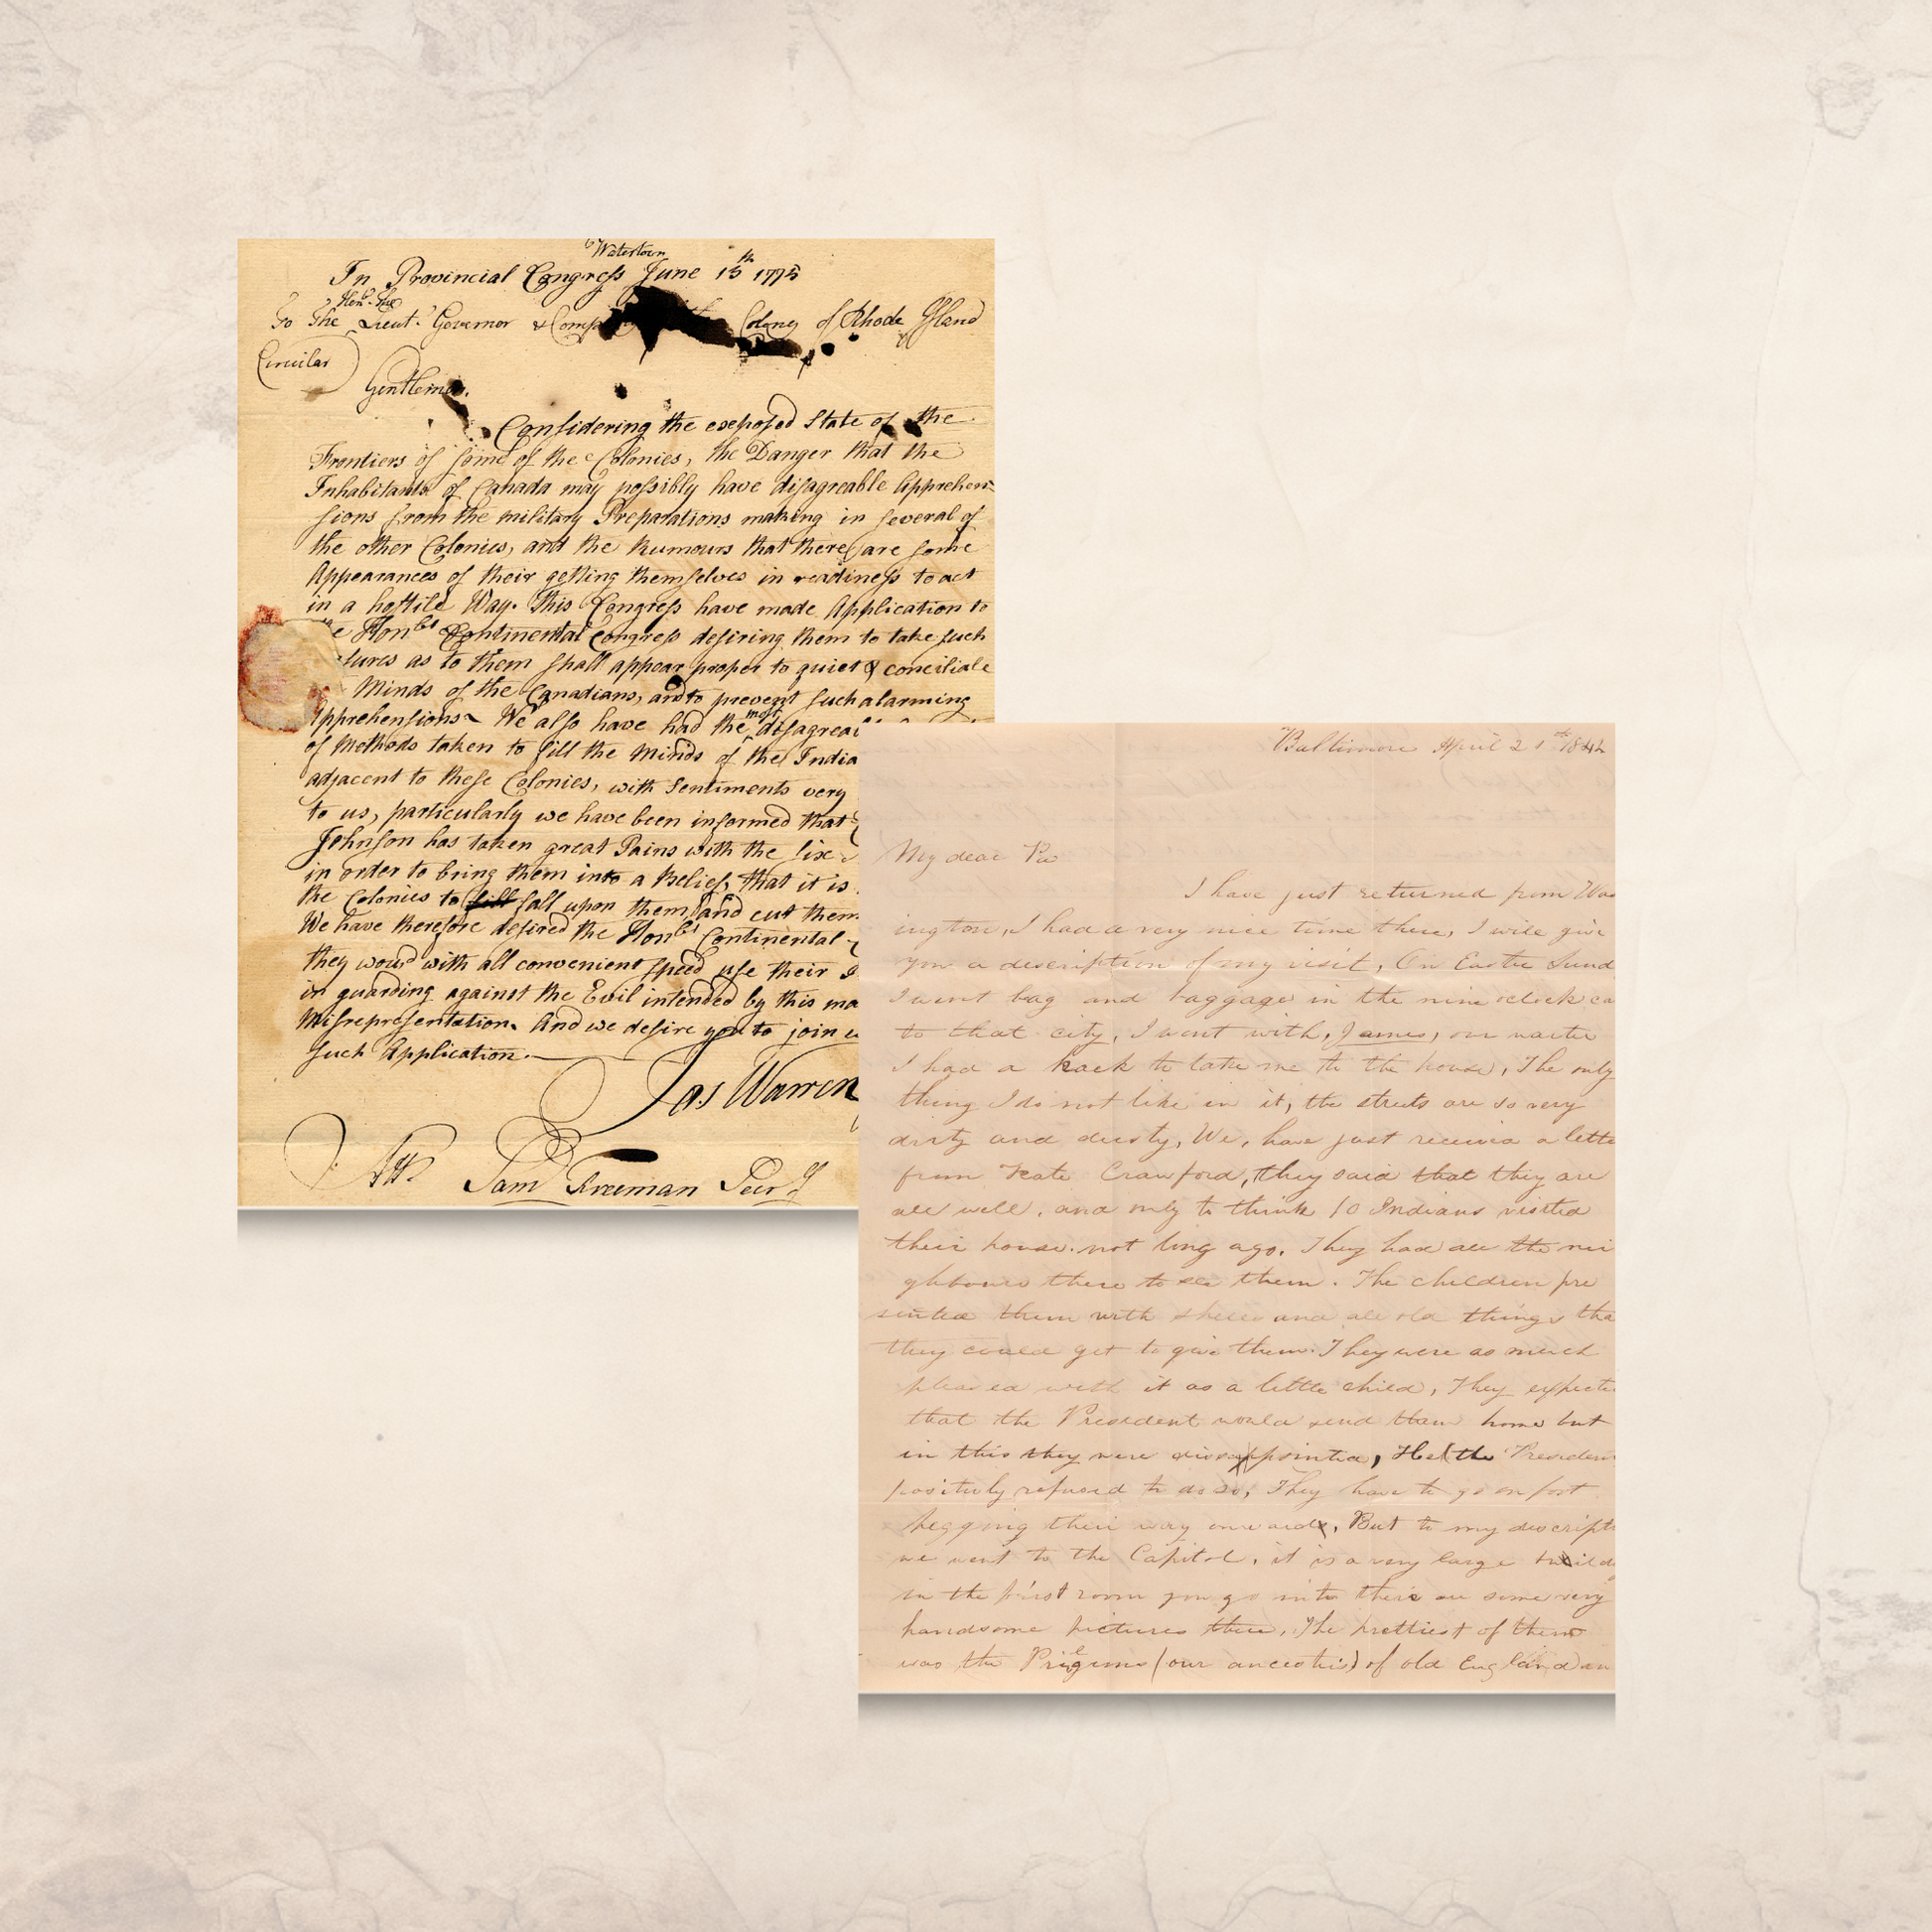 Watertown
In Provincial Congress June 15th 1775
Honble. the
To The Lieut. Governor & Comp the Colony of Rhode Island
Circular
Gentlemen.
Considering the exposed State of the
Frontiers of some of the Colonies, the Danger that the
Inhabitants of Canada may possibly have disagreable Apprehen-
sions from the military Preparations making in several of
the other Colonies, and the Rumours that there are some
Appearances of their getting themselves in readiness to act
in a hostile Way. This Congress have made Application to
e Honble Continental Congress desiring them to take such
sures as to them shall appear proper to quiet & conciliate
Minds of the Canadians, and to prevent such alarming
Apprehensions We also have had the most disagreea
of Methods taken to fill the Minds of the India
adjacent to these Colonies, with Sentiments very
to us, particularly we have been informed that
Johnson has taken great Pains with the Six
in order to bring them into a Belief, that it is
the Colonies to fall upon them and cut them
We have therefore desired the Honble Continental
they would with all convenient speed use their I
in guarding against the Evil intended by this ma
Misrepresentation. And we desire you to join w
such Application.
Jas Warren
Att Sam Freeman Secry
Baltimore April 21st 1842
My dear Pa
I have just returned from Was
ington, I had a very nice time there, I will give
you a description of my visit, On Easter Sund
I went bag and baggage in the nine oclock ca
to that city, I went with, James, our waiter
I had a hack to take me to the house, The only
thing I do not like in it, the streets are so very
dirty and dusty, We, have just receivd a lette
from Kate Crawford, they said that they are
all well, and only to think 10 Indians visited
their house not long ago. They had all the nei
ghbours there to see them. The children pre
sented them with shells and all old things tha
they could get to give them. They were as much
pleased with it as a little child, They expecte
that the President would send them home but
in this they were dissappointed, He (the Presiden
positivly refused to do so, They have to go on foot
begging their way onward, But to my descripti
we went to the Capitol, it is a very large build
in the first room you go into their are some very
handsome pictures there, The prettiest of them
was the Prilgrims (our ancestors) of old England an